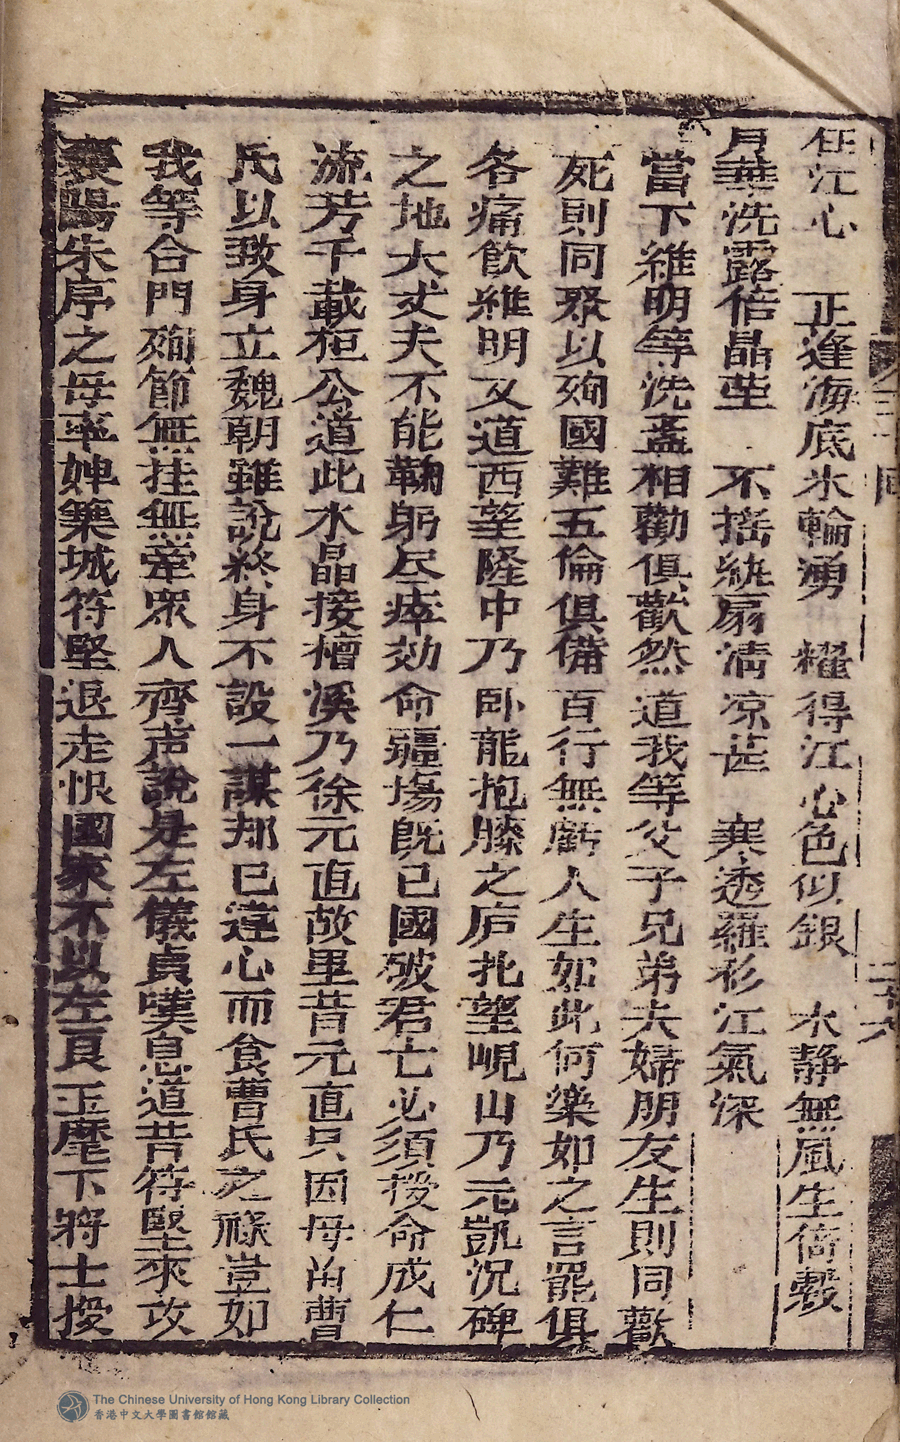 在江心　正逢海底氷輪湧　耀得江心色似銀　水靜無風生倚縠
月華洗露倍晶瑩　不搖紈扇清凉甚　寒透羅衫江氣深
當下維明等洗盞相勸俱歡然道我等父子兄弟夫婦朋友生則同歡
死則同聚以殉國難五倫俱備百行無虧人生如此何樂如之言罷俱
各痛飲維明又道西望隆中乃卧龍抱膝之庐北望峴山乃元凱沉碑
之地大丈夫不能鞠躬尽瘁効命疆塲既已國破君亡必須授命成仁
流芳千載桓公道此水晶接檀溪乃徐元直故里昔元直只因母㽞曹
氏以致身立魏朝雖說終身不設一謀却已違心而食曹氏之祿豈如
我等合門殉節無挂無牽眾人齊声說是左儀貞嘆息道昔符堅來攻
襄陽朱序之母率婢築城符堅退走恨國家不以左良玉麾下將士授
The Chinese University of Hong Kong Library Collection
香港中文大學圖書館館藏